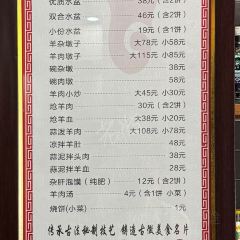 优质水盆 38元（含2饼）
双合水盆 46元（含2饼）
小份水盆 29元（含2饼）
羊杂墩子 大78元 小58元
羊肉墩子 大115元 小85元
碗杂墩 38元
碗肉墩 58元
羊肉小炒 大45元 小30元
炝羊肉 大60元 小38元
炝羊血 大38元 小20元
蒜泼羊肉 大108元 小78元
凉拌羊肚 48元
蒜泥拌头肉 38元
蒜泥拌羊血 28元
杂肝泡馍（纯肥） 12元（含2个饼）
羊肉汤 4元（含1个饼 小菜）
烧饼(小菜) 1元
传承古法秘制技艺 铸造古徵美食名片